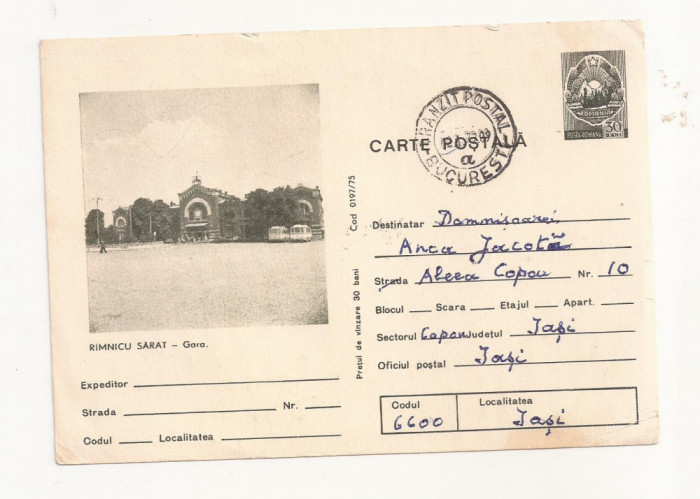 RIMNICU SĂRAT – Gara.
Expeditor
Strada Nr.
Codul Localitatea
Cod 0197/75
Prețul de vînzare 30 bani
TRANZIT POSTAL
a
BUCUREȘTI
ROMANIA
POSTA ROMANA 30 BANI
CARTE POȘTALĂ
Destinatar Domnișoarei
Anca Jacotă
Strada Aleea Copou Nr. 10
Blocul Scara Etajul Apart.
Sectorul Copou Județul Iași
Oficiul poștal Iași
Codul Localitatea
6600 Iași